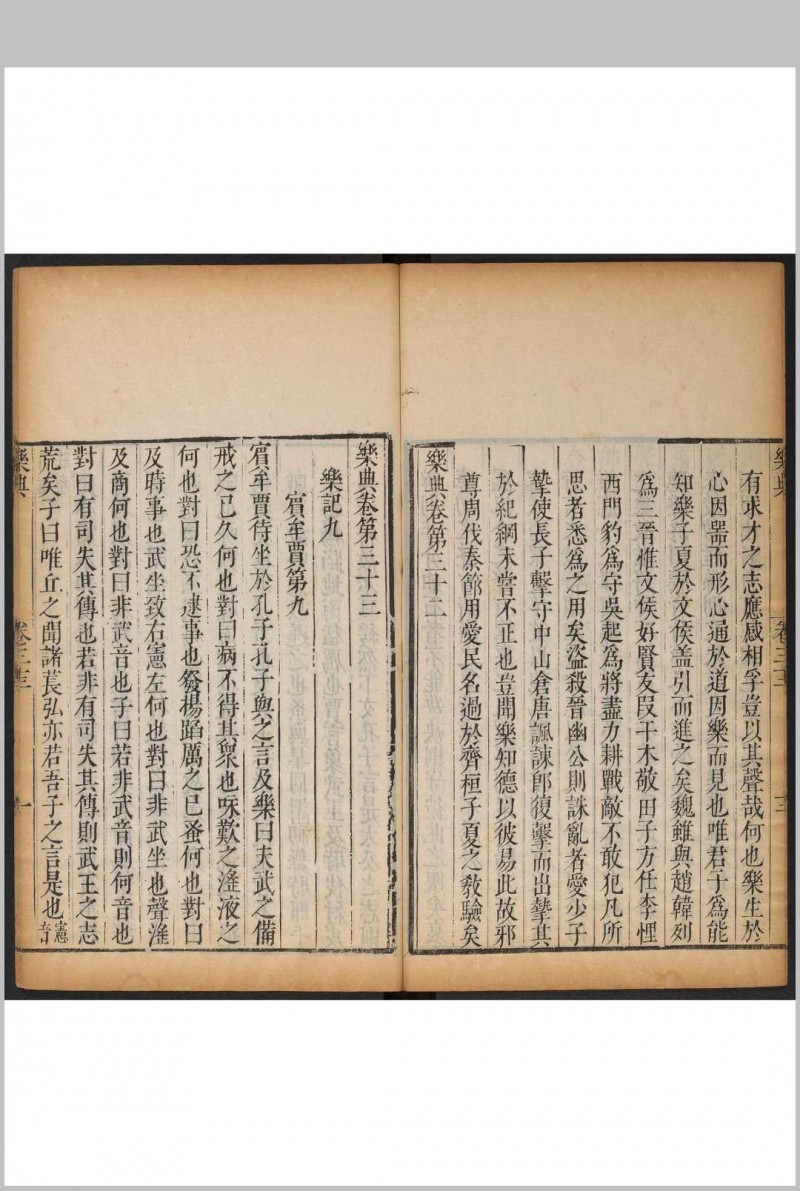 樂典 卷三十二 十三
有求才之志應感相孚豈以其聲哉何也樂生於
心因器而形心通於道因樂而見也唯君子爲能
知樂子夏於文侯盖引而進之矣魏雖與趙韓列
爲三晉惟文侯好賢友段干木敬田子方任李悝
西門豹爲守吳起爲將盡力耕戰敵不敢犯凡所
思者悉爲之用矣盜殺晉幽公則誅亂者愛少子
摯使長子擊守中山倉唐諷諫卽復擊而出摯其
於紀綱未嘗不正也豈聞樂知德以彼易此故邪
尊周伐秦節用愛民名過於齊桓子夏之教驗矣
樂典卷第三十二
樂典卷第三十三
樂記九
賓牟賈第九
賓牟賈待坐於孔子孔子與之言及樂曰夫武之備
戒之已久何也對曰病不得其眾也咏歎之滛液之
何也對曰恐不逮事也發揚蹈厲之已蚤何也對曰
及時事也武坐致右憲左何也對曰非武坐也聲滛
及商何也對曰非武音也子曰若非武音則何音也
對曰有司失其傳也若非有司失其傳則武王之志
荒矣子曰唯丘之聞諸萇弘亦若吾子之言是也憲音
樂典 卷三十三 一